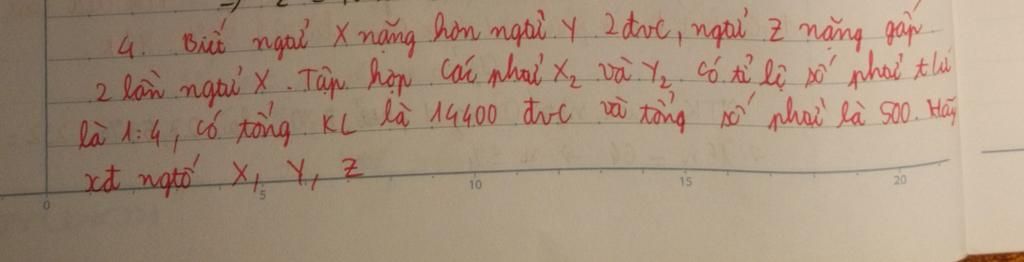 4. Biết ngtử X nặng hơn ngtử Y 2 đvc, ngtử Z nặng gấp
2 lần ngtử X. Tập hợp các phtử X₂ và Y₂ có tỉ lệ số phtử t/ư
là 1:4, có tổng KL là 14400 đvc và tổng số phtử là 500. Hãy
xđ ngtố X, Y, Z
0 5 10 15 20